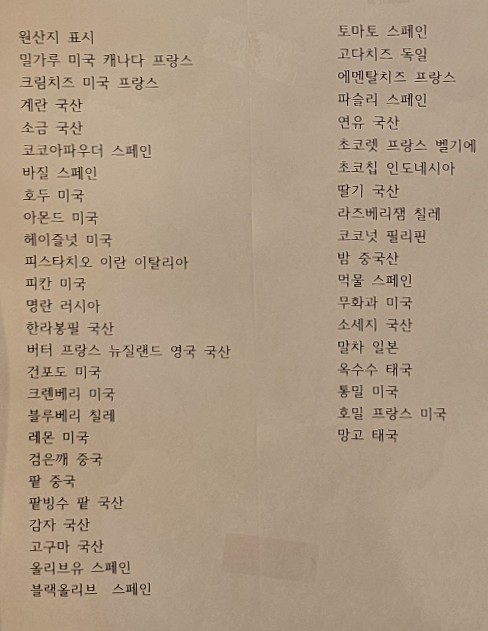 원산지 표시
밀가루 미국 캐나다 프랑스
크림치즈 미국 프랑스
계란 국산
소금 국산
코코아파우더 스페인
바질 스페인
호두 미국
아몬드 미국
헤이즐넛 미국
피스타치오 이란 이탈리아
피칸 미국
명란 러시아
한라봉필 국산
버터 프랑스 뉴질랜드 영국 국산
건포도 미국
크렌베리 미국
블루베리 칠레
레몬 미국
검은깨 중국
팥 중국
팥빙수 팥 국산
감자 국산
고구마 국산
올리브유 스페인
블랙올리브 스페인
토마토 스페인
고다치즈 독일
에멘탈치즈 프랑스
파슬리 스페인
연유 국산
초코렛 프랑스 벨기에
초코칩 인도네시아
딸기 국산
라즈베리잼 칠레
코코넛 필리핀
밤 중국산
먹물 스페인
무화과 미국
소세지 국산
말차 일본
옥수수 태국
통밀 미국
호밀 프랑스 미국
망고 태국